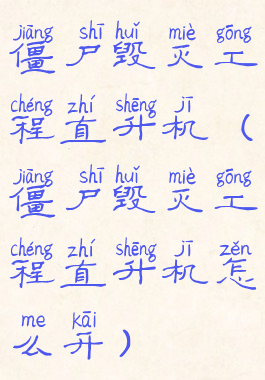 jiāng shī huǐ miè gōng
僵尸毁灭工
chéng zhí shēng jī
程直升机（
jiāng shī huǐ miè gōng
僵尸毁灭工
chéng zhí shēng jī zěn
程直升机怎
me kāi
么开）